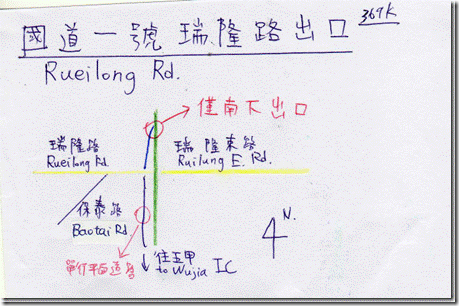 國道一號 瑞隆路出口 369K
Rueilong Rd.
僅南下出口
瑞隆路
Rueilong Rd.
瑞隆東路
Ruilung E. Rd.
保泰路
Baotai Rd
單行平面道路
往五甲
to Wujia IC
N.